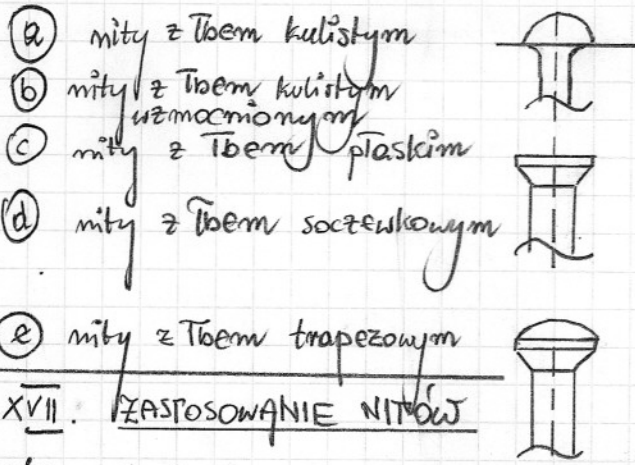 a nity z łbem kulistym
b nity z łbem kulistym
wzmocnionym
c nity z łbem płaskim
d nity z łbem soczewkowym
e nity z łbem trapezowym
XVII. ZASTOSOWANIE NITÓW